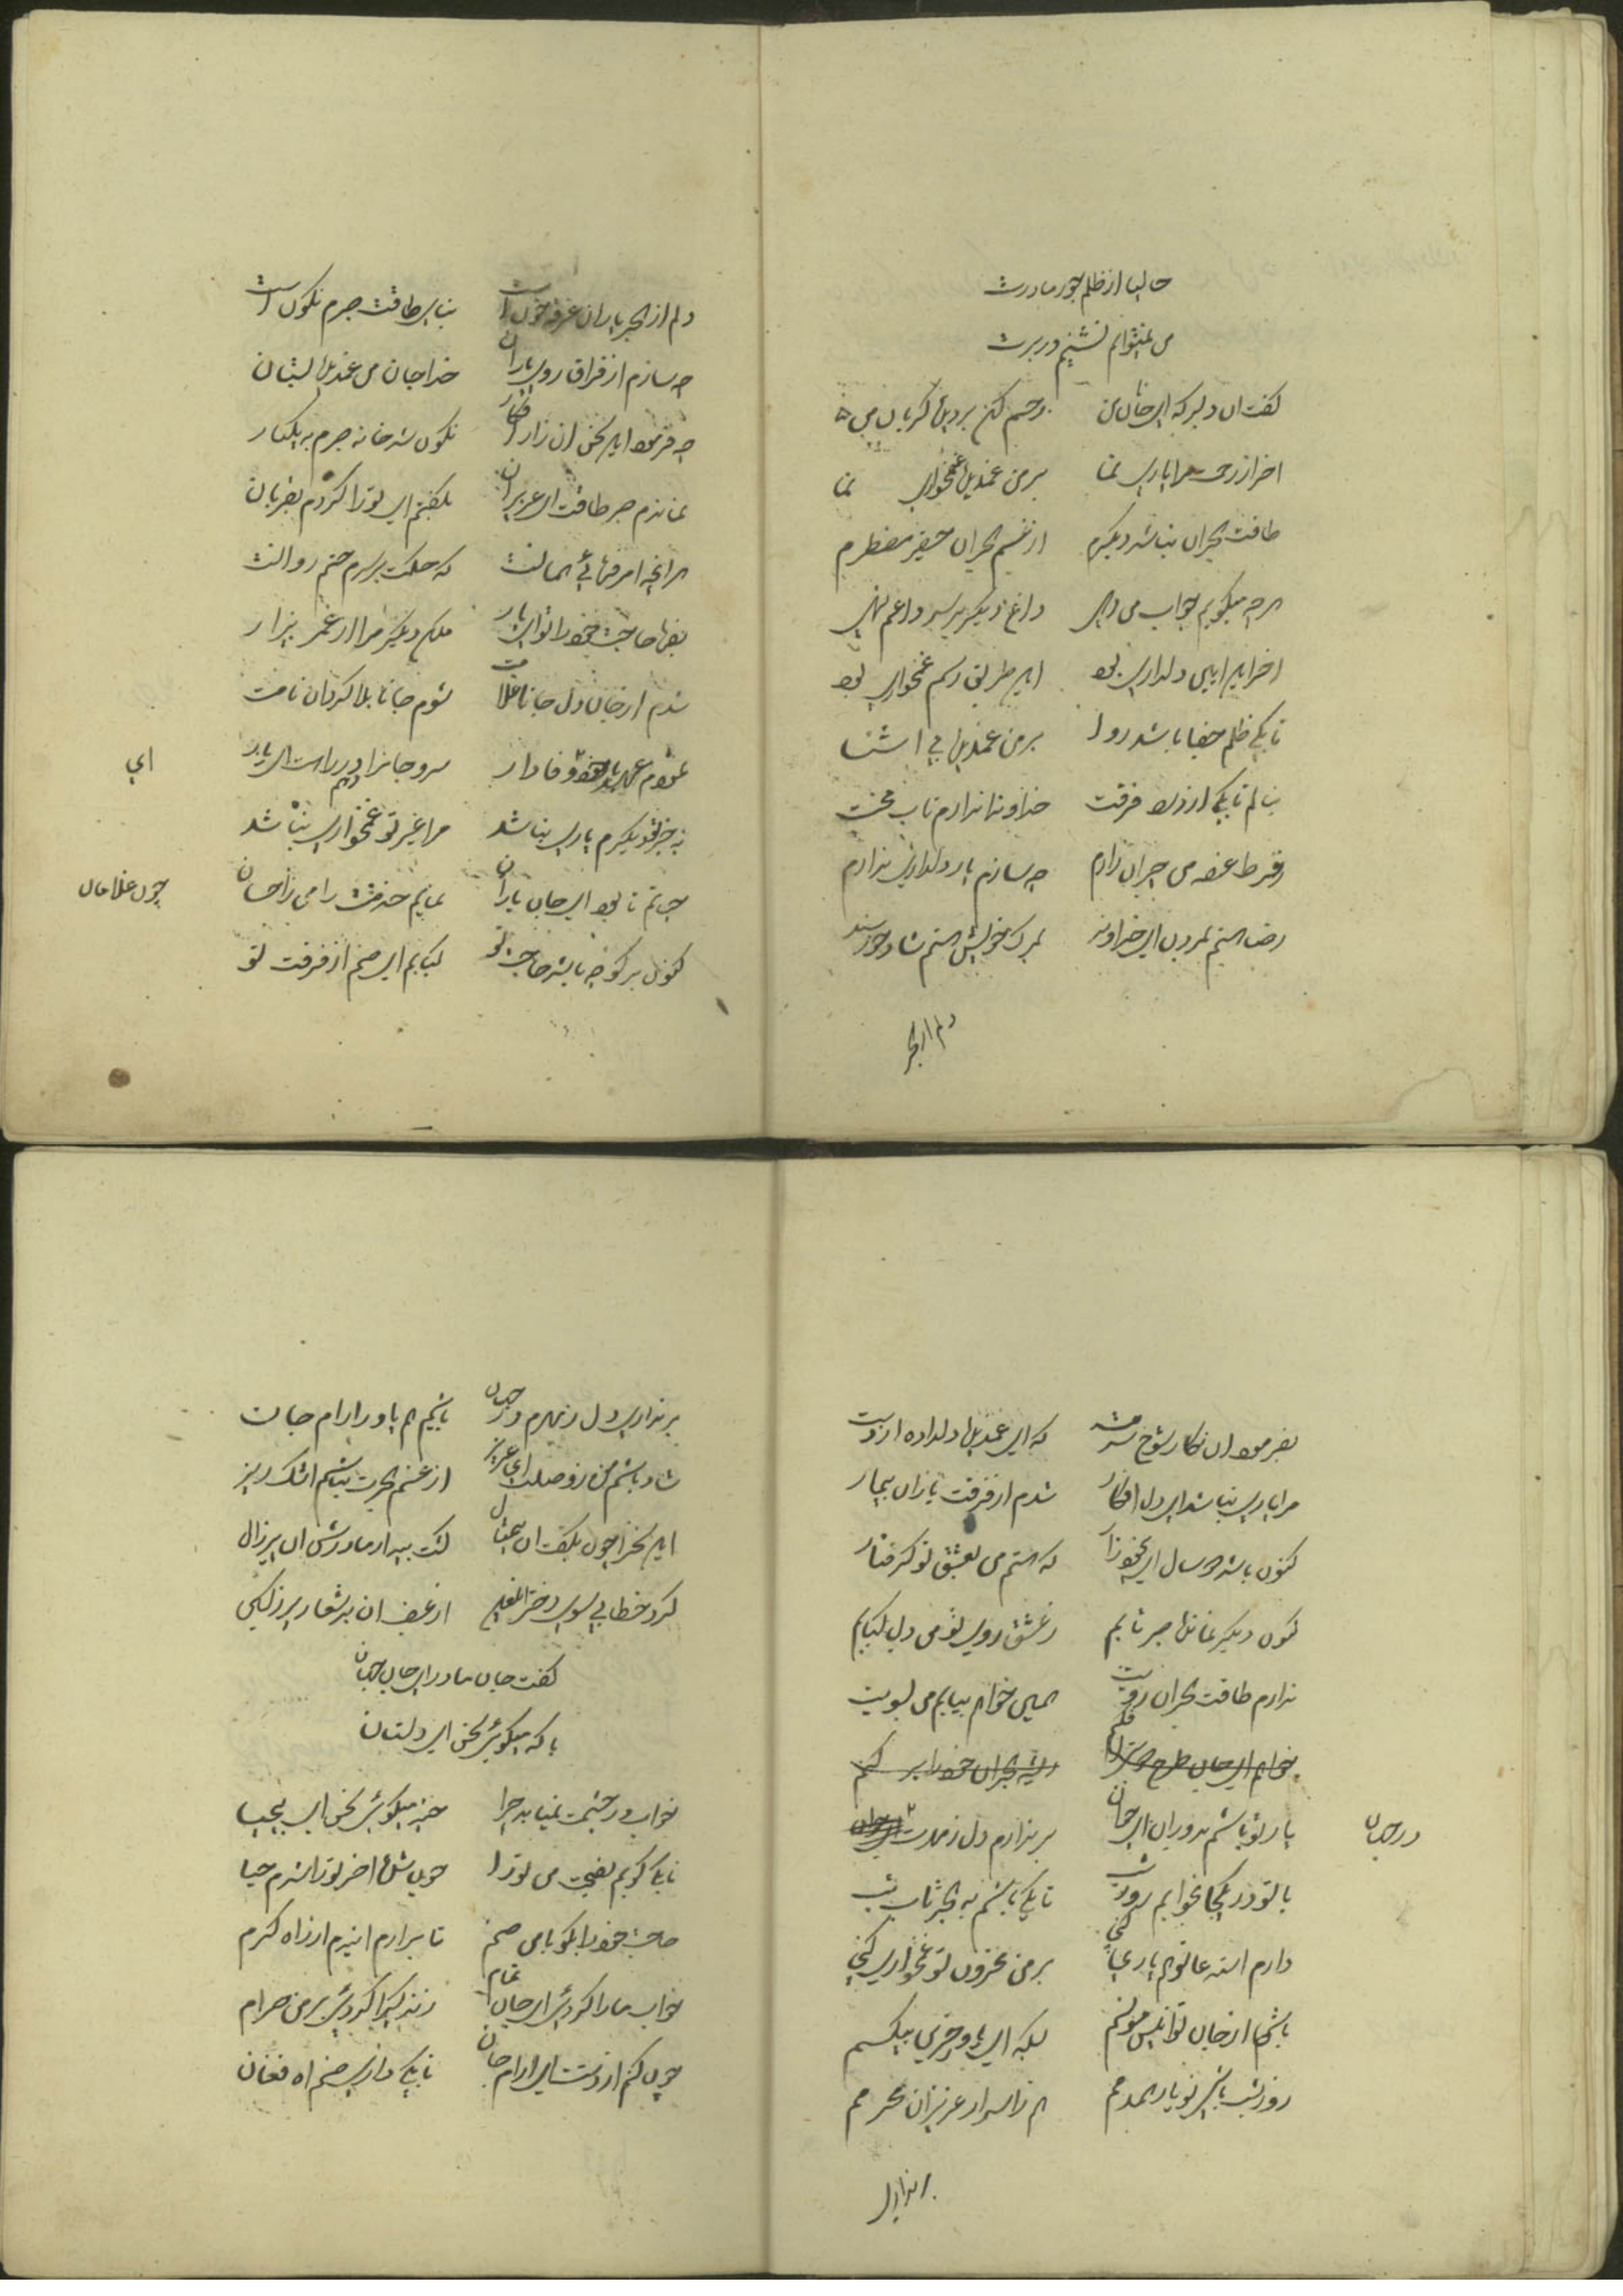 حالیا از ظلم جور مادرت
می نمیتوانم نشینم در برت
گفت ان دلبر که ای جان من رحم کن بر دیده گریان من
اخر از رحمت مرا یاری نما بر من غمدیده غمخواری نما
طاقت هجران نباشد دیگرم از غم هجران حقیر مضطرم
هر چه میگویم جواب می دهی داغ دیگر بر سر داغم نهی
اخر این ایین دلداری بود این طریق رسم غمخواری بود
تا بکی ظلم جفا باشد روا بر من غمدیده بی اشنا
بنالم تا بکی از درد فرقت خداوندا ندارم تاب محنت
ز فرط غصه می حیران زارم چه سازم یار دلداری ندارم
رضا هستم بمردن ای خداوند بمرک خویش هستم شاد خورسند
دلم از هجر
دلم از هجر یاران غرقه خون است بنای طاقت صبرم نکون است
چه سازم از فراق روی یاران خدا جان من غمدیده بستان
چه فرمود این سخن ان زار افکار نکون شد خانه صبرم به یکبار
نماندم صبر طاقت ای عزیزان بکفتم ای تو را کردم بقربان
هر انچه امر فرمائی همانست که حکمت بر سرم حتم روانست
بفرما حاجت خود را تو ای یار مکن دیگر مرا از عمر بیزار
شدم از جان دل جانا غلامت شوم جانا بلا کردان نامت
وفادار سر و جانرا دهم در راهت ای یار
ای
به جز تو دیگرم یاری نباشد مرا غیر تو غمخواری نباشد
حیاتم تا بود ای جان یاران نمایم خدمتت را می ز احسان
چون غلامان
کنون بر کو چه باشد حاجت تو کبابم ای صنم از فرقت تو
بفرمود ان نکار شوخ سرمست که ای غمدیده دلداده از دست
مرا یاری نباشد ای دل افکار شدم از فرقت یاران بیمار
کنون باشد دو سال که هستم می بعشق تو کرفتار
کنون دیکر نمانده صبر تابم ز عشق روی تو می دل کبابم
ندارم طاقت هجران رویت همی خواهم بیایم می بسویت
یار تو باشم بدوران ای جان بر ندارم دل ز مهرت
در جهان
با تو در یکجا بخوابم روز شب تا بکی باشم به هجر تاب تب
دارم استدعا تو هم یاری کنی بر من محزون تو غمخواری کنی
باشی از جان تو انیس مونسم بلکه ای یاور حزین بیکسم
روز شب باشی تو یار همدمم هم ز اسرار عزیزان محرمم
بر نداری دل
بر نداری دل ز مهرم در جهان باشیم هم یاور ارام جان
شاد باشم من ز وصلت ای عزیز از غم هجرت نباشم اشک ریز
این سخن را چون بکفت ان بیمثال کشت بیدار مادرش ان پیر زال
کرد خطابی بسوی دختر از غیض ان بد شعار
کفت جان مادر ای جان جهان
با که میکوئی سخن ای دلستان
خواب در چشمت نمیاید چرا خیز میکوئی سخن ای بیحیا
تا بکی کویم نصیحت می تو را چون شد اخر تو را شرم حیا
حاجت خود را بکو با می صنم تا برارم اندم از راه کرم
خواب ما را کردی ای جان تمام زندکی را کردی بر من حرام
چون کنم از دستت ای ارام جان تا بکی داری صنم اه فغان